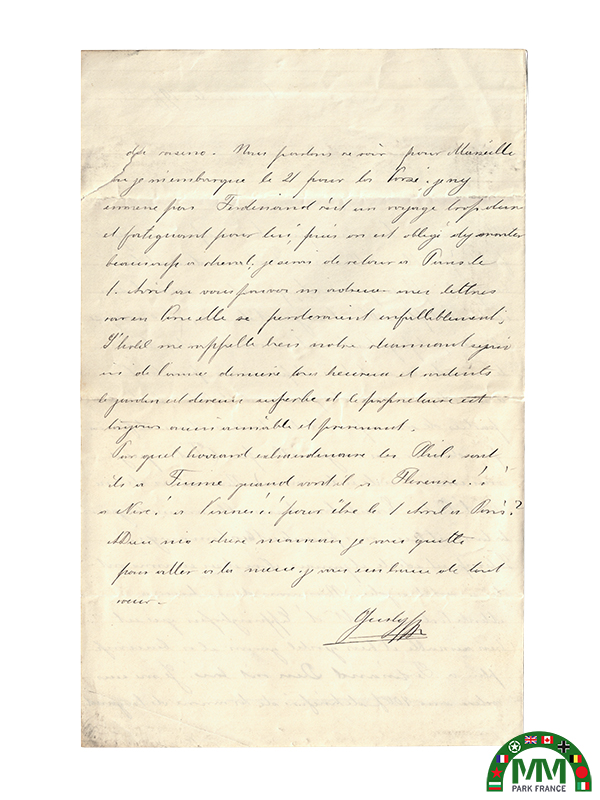 du casino. Nous partons ce soir pour Marseille
où je m'embarque le 21 pour la Corse. je n'y
emmène pas Ferdinand c'est un voyage trop dur
et fatiguant pour lui, puis on est obligé d'y monter
beaucoup à cheval, je serai de retour à Paris le
1. Avril où vous pouvez m'adresser mes lettres
car en Corse elle se perderaient infailliblement,
L'hotel me rappelle bien notre charmant
de l'année dernière tous heureux et contents
le jardin est devenu superbe et le propriétaire est
toujours aussi aimable et prévenant.
Par quel hasard extraordinaire les Phil. sont
ils à Fiume quand vont-il à Florence! à
à Nice! à Cannes! pour être le 1 Avril à Paris?
Adieu ma chère maman je vous quitte
pour aller à la messe. je vous embrasse de tout
coeur.
MM
PARK FRANCE